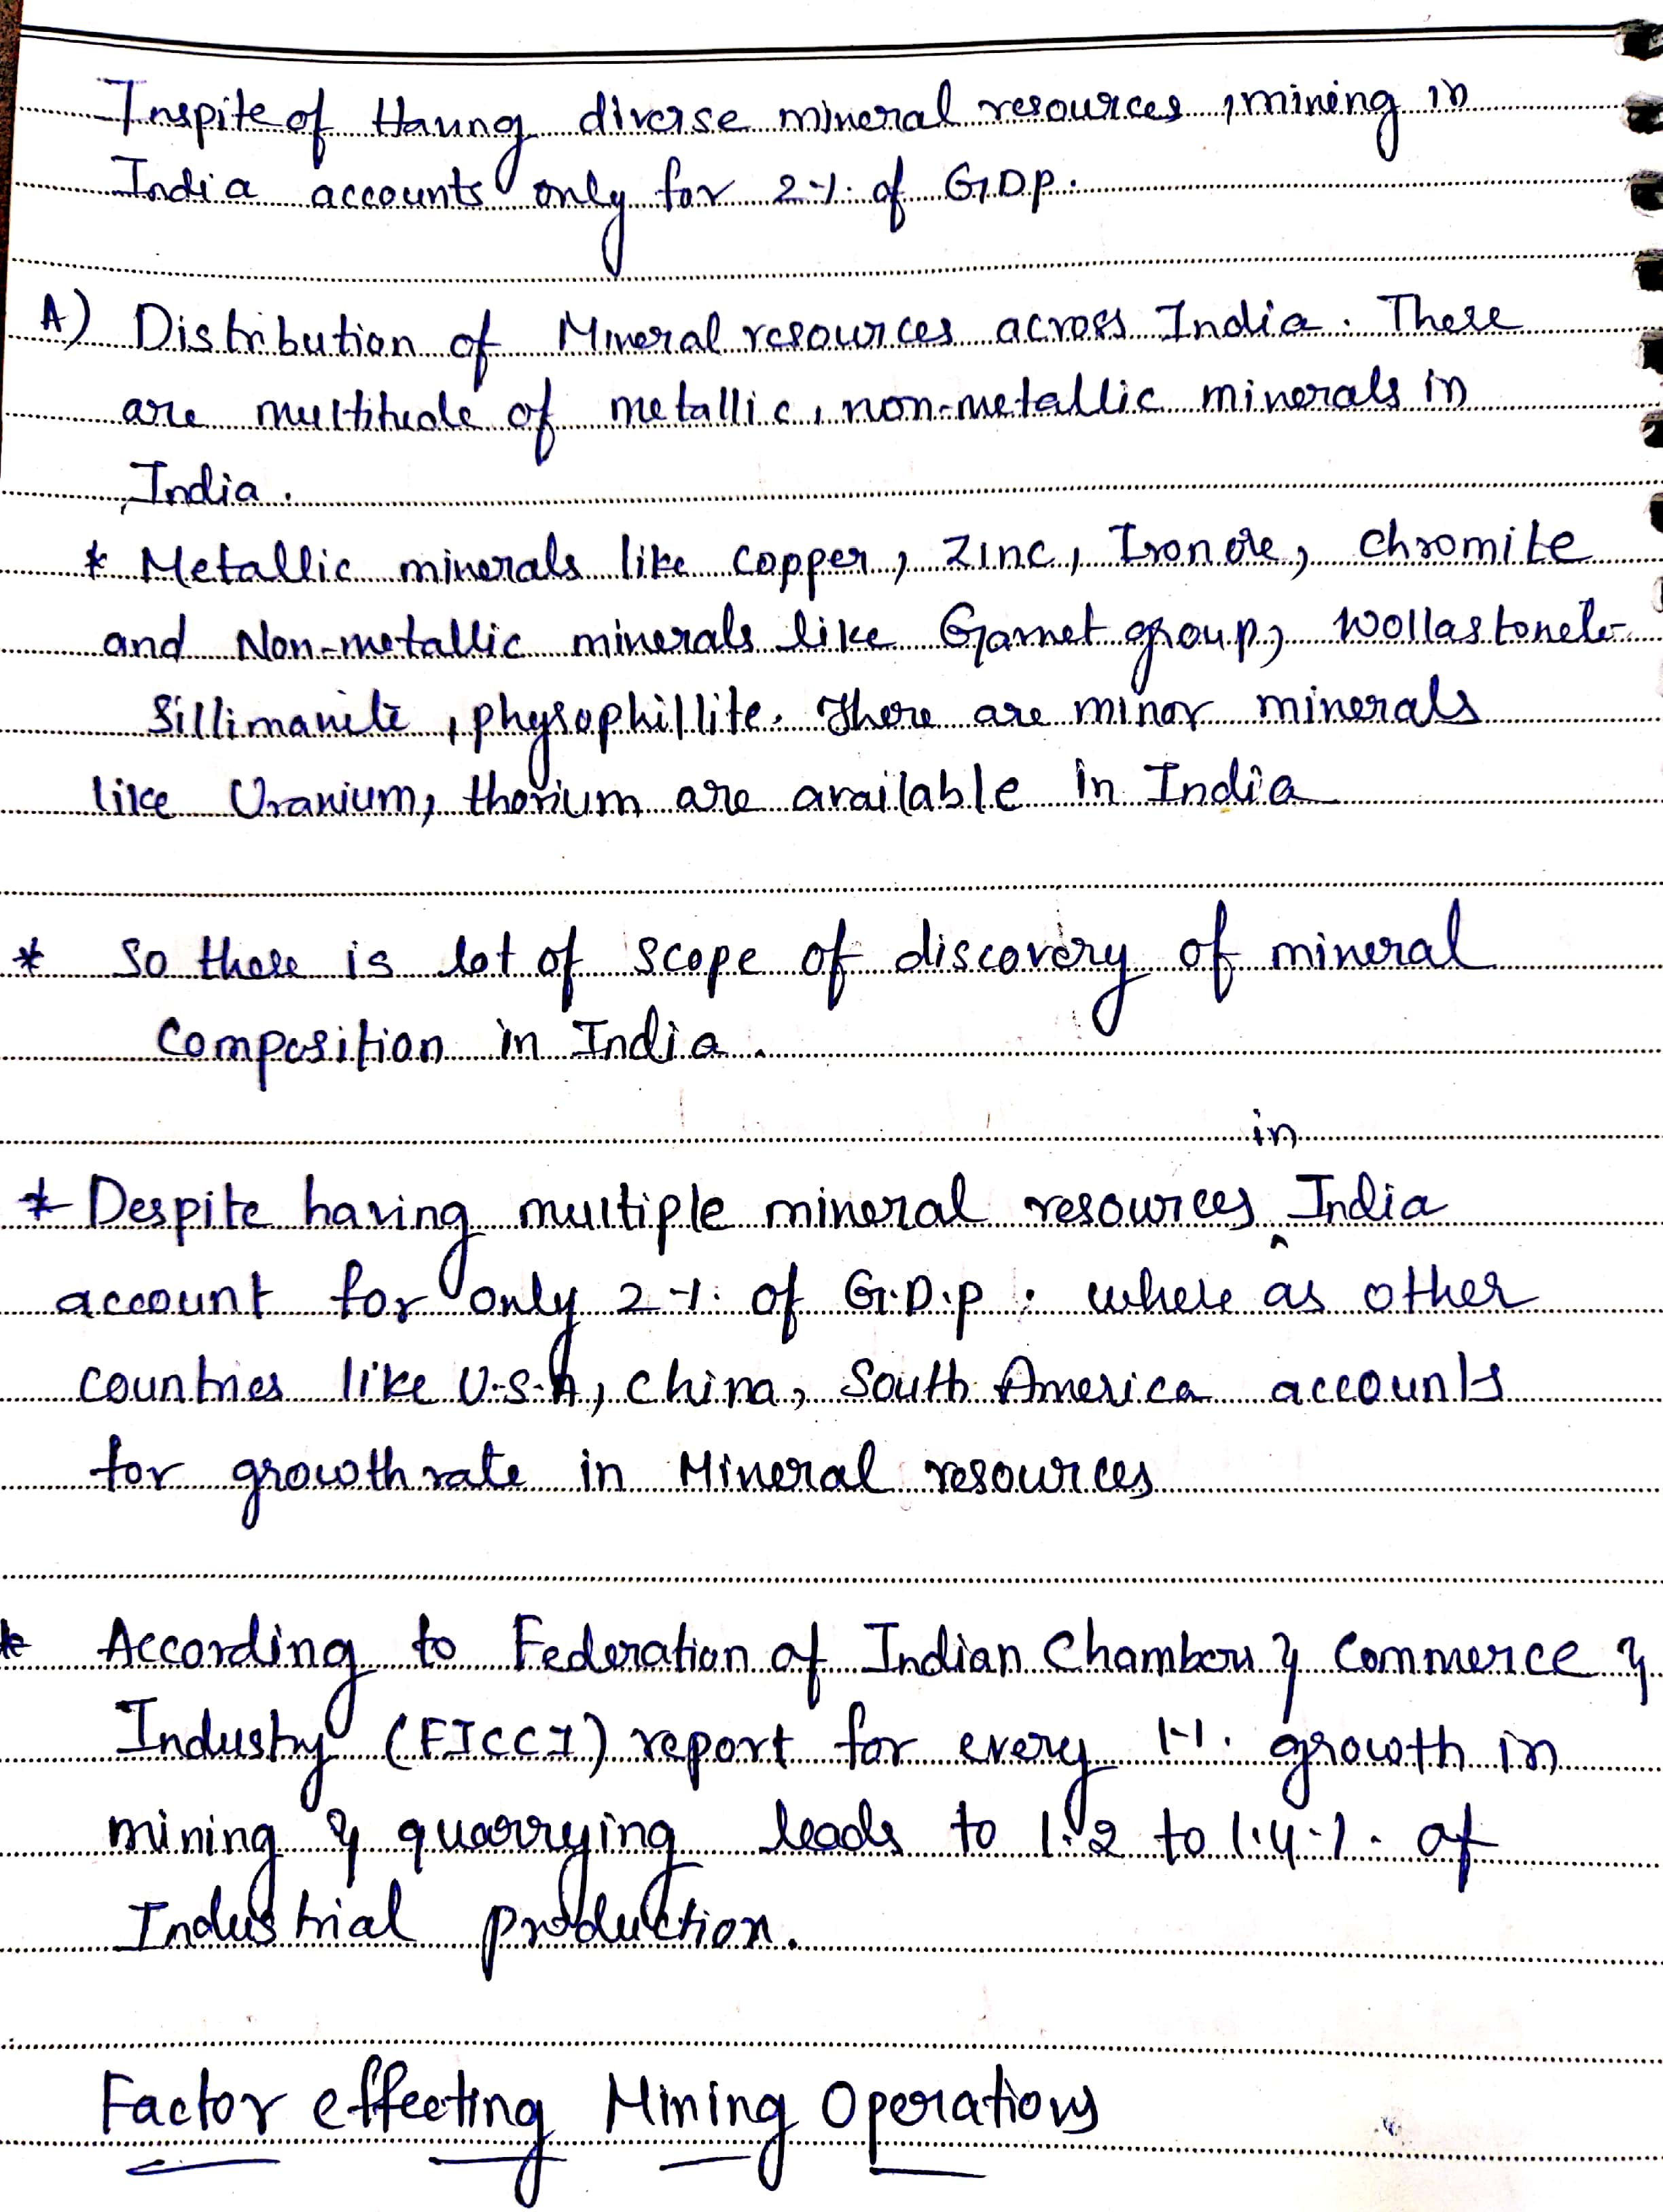 Inspite of Having diverse mineral resources, mining in
India accounts only for 2%. of G.D.P.
A) Distribution of Mineral resources across India. There
are multitude of metallic, non-metallic minerals in
India.
* Metallic minerals like copper, Zinc, Iron ore, chromite
and Non-metallic minerals like Garnet group, Wollastonite
Sillimanite, physophillite. There are minor minerals
like Uranium, thorium are available in India
* So there is lot of scope of discovery of mineral
Composition in India.
in
* Despite having multiple mineral resources ^ India
account for only 2%. of G.D.P. where as other
countries like U.S.A, China, South America accounts
for growth rate in Mineral resources
* According to Federation of Indian Chambers & Commerce &
Industry (FICCI) report for every 1%. growth in
mining & quarrying leads to 1.2 to 1.4%. of
Industrial production.
Factor effecting Mining Operations